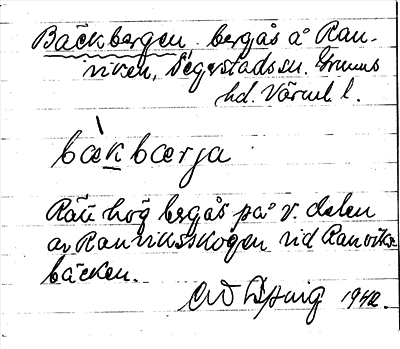 Bäckbergen, bergås å Ran-
viken, Segerstads sn. Grums
hd. Värml. l.
bæ̀kbærja
Rätt hög bergås på v. delen
av Ranviksskogen vid Ranviks
bäcken.
1942.